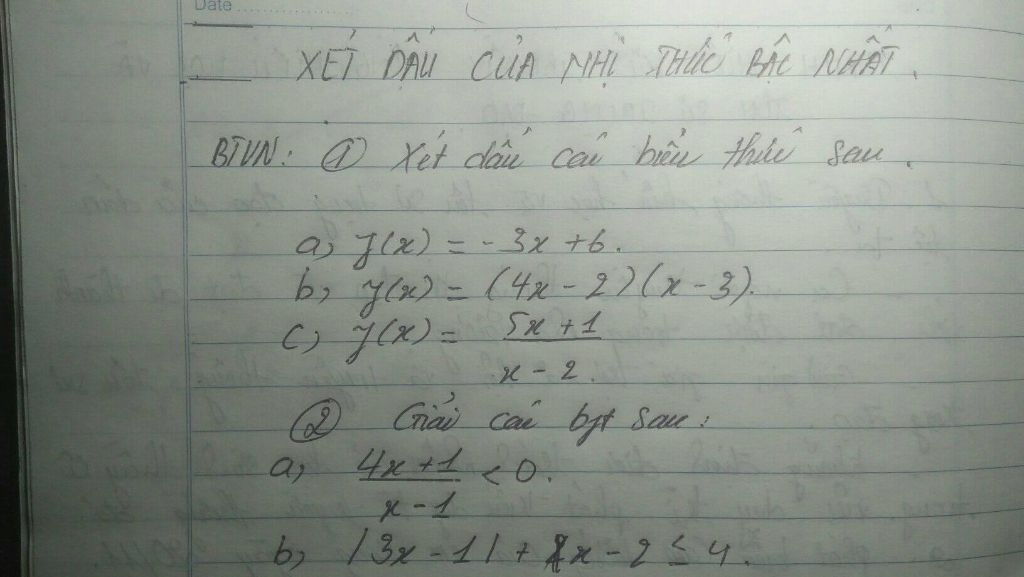 Date
XÉT DẤU CỦA NHỊ THỨC BẬC NHẤT.
BTVN: ① Xét dấu các biểu thức sau.
a, f(x) = -3x + 6.
b, f(x) = (4x - 2)(x - 3).
c, f(x) = \frac{5x + 1}{x - 2}.
② Giải các bpt sau:
a, \frac{4x + 1}{x - 1} < 0.
b, |3x - 1| + x - 2 ≤ 4.